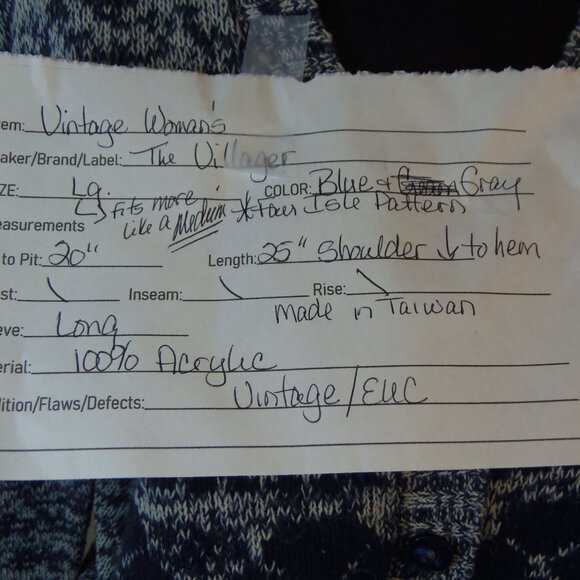 em: Vintage Woman's
aker/Brand/Label: The Villager
ZE: Lg. COLOR: Blue + Gray
fits more like a Medium * Fair Isle Pattern
easurements
to Pit: 20" Length: 25" Shoulder ↓ to hem
st: \ Inseam: \ Rise: \
Made in Taiwan
eve: Long
erial: 100% Acrylic
dition/Flaws/Defects: Vintage/EUC